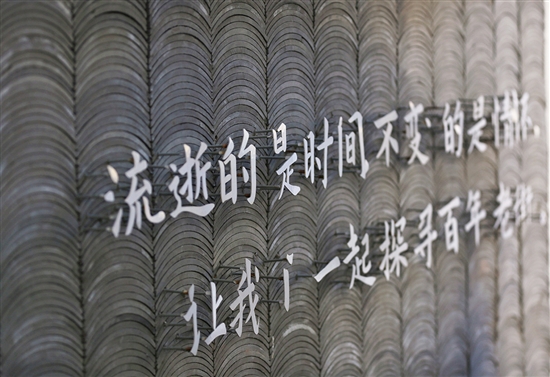 流逝的是时间,不变的是情怀,
让我亻一起探寻百年老街。